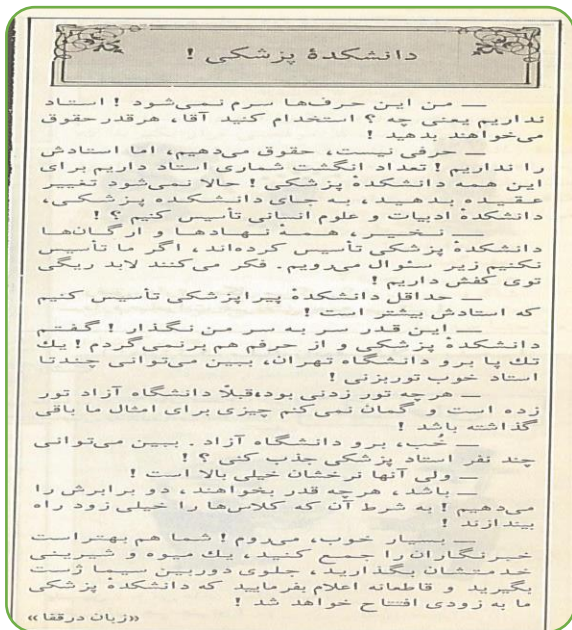 دانشکدهٔ پزشکی !
— من این حرف‌ها سرم نمی‌شود ! استاد
نداریم یعنی چه ؟ استخدام کنید آقا، هرقدر حقوق
می‌خواهند بدهید !
— حرفی نیست، حقوق می‌دهیم، اما استادش
را نداریم ! تعداد انگشت شماری استاد داریم برای
این همه دانشکدهٔ پزشکی ! حالا نمی‌شود تغییر
عقیده بدهید، به جای دانشکده پزشکی،
دانشکدهٔ ادبیات و علوم انسانی تأسیس کنیم ؟ !
— نخیر، همهٔ نهادها و ارگان‌ها
دانشکدهٔ پزشکی تأسیس کرده‌اند، اگر ما تأسیس
نکنیم زیر سئوال می‌رویم. فکر می‌کنند لابد ریگی
توی کفش داریم !
— حداقل دانشکدهٔ پیراپزشکی تأسیس کنیم
که استادش بیشتر است !
— این قدر سر به سر من نگذار ! گفتم
دانشکدهٔ پزشکی و از حرفم هم برنمی‌گردم ! یك
تك پا برو دانشگاه تهران، ببین می‌توانی چندتا
استاد خوب توربزنی !
— هرچه تور زدنی بود،قبلاً دانشگاه آزاد تور
زده است و گمان نمی‌کنم چیزی برای امثال ما باقی
گذاشته باشد !
— خُب، برو دانشگاه آزاد . ببین می‌توانی
چند نفر استاد پزشکی جذب کنی ؟ !
— ولی آنها نرخشان خیلی بالا است !
— باشد، هرچه قدر بخواهند، دو برابرش را
می‌دهیم ! به شرط آن که کلاس‌ها را خیلی زود راه
بیندازند !
— بسیار خوب، می‌روم ! شما هم بهتراست
خبرنگاران را جمع کنید، یك میوه و شیرینی
خدمتشان بگذارید، جلوی دوربین سیما ژست
بگیرید و قاطعانه اعلام بفرمایید که دانشکدهٔ پزشکی
ما به زودی افتتاح خواهد شد !
«زبان درقفا»